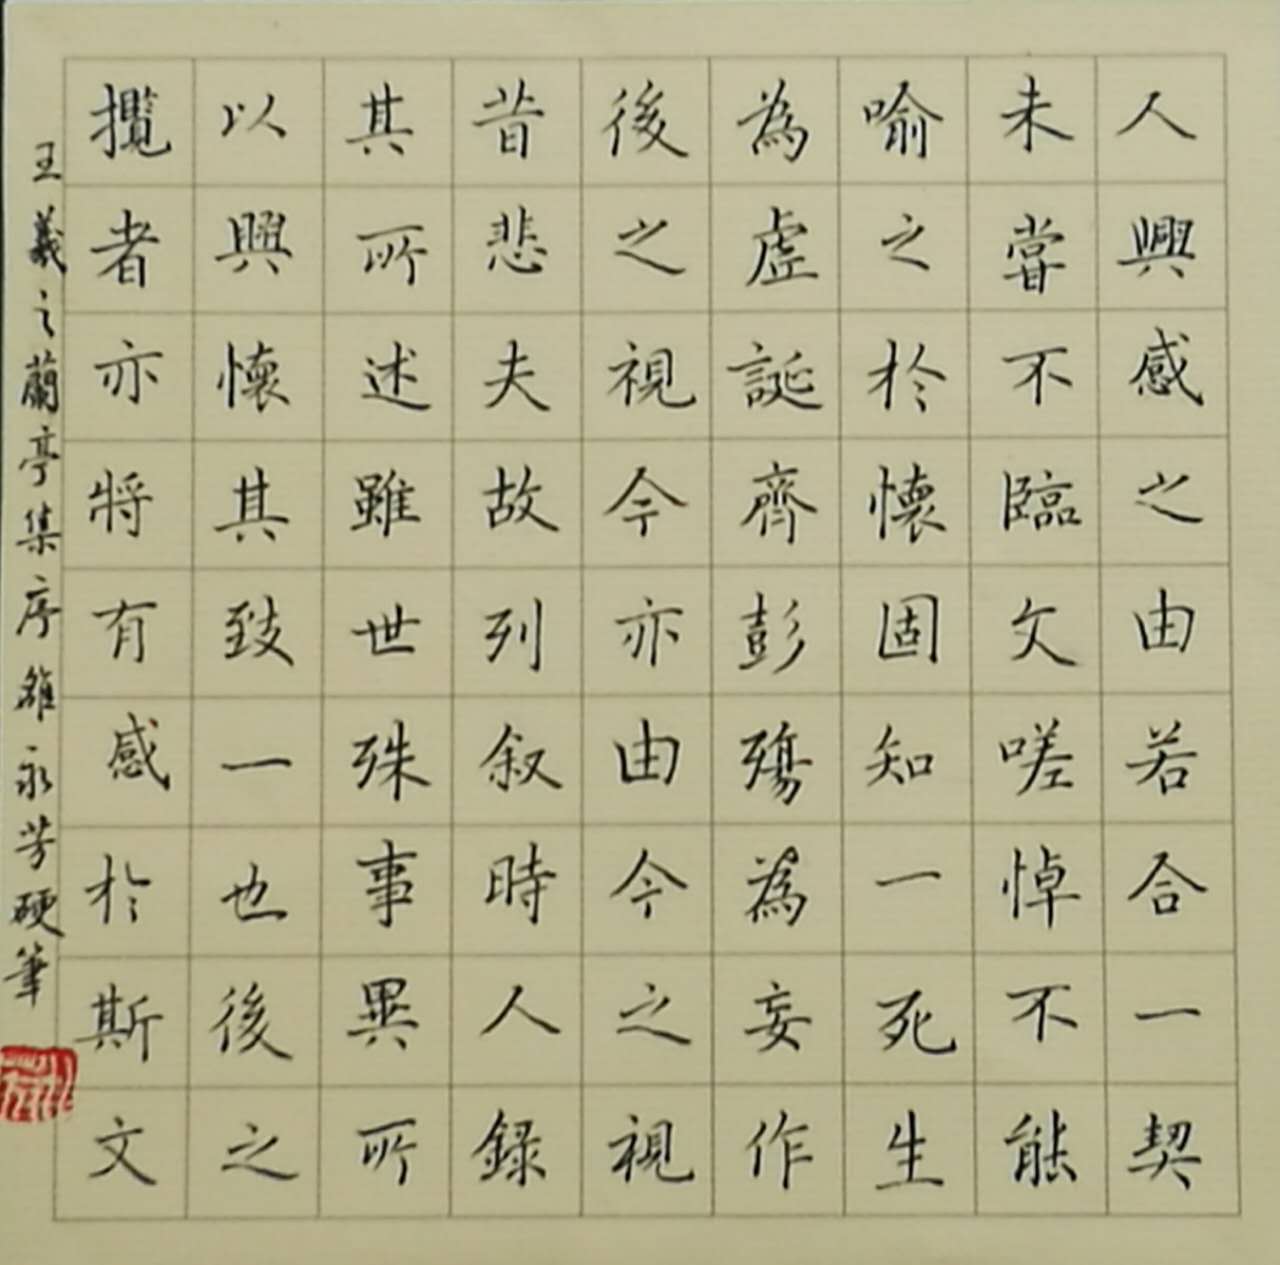 人興感之由若合一契
未嘗不臨文嗟悼不能
喻之於懷固知一死生
為虛誕齊彭殤為妄作
後之視今亦由今之視
昔悲夫故列叙時人録
其所述雖世殊事異所
以興懷其致一也後之
攬者亦將有感於斯文
王羲之蘭亭集序雒永芳硬筆